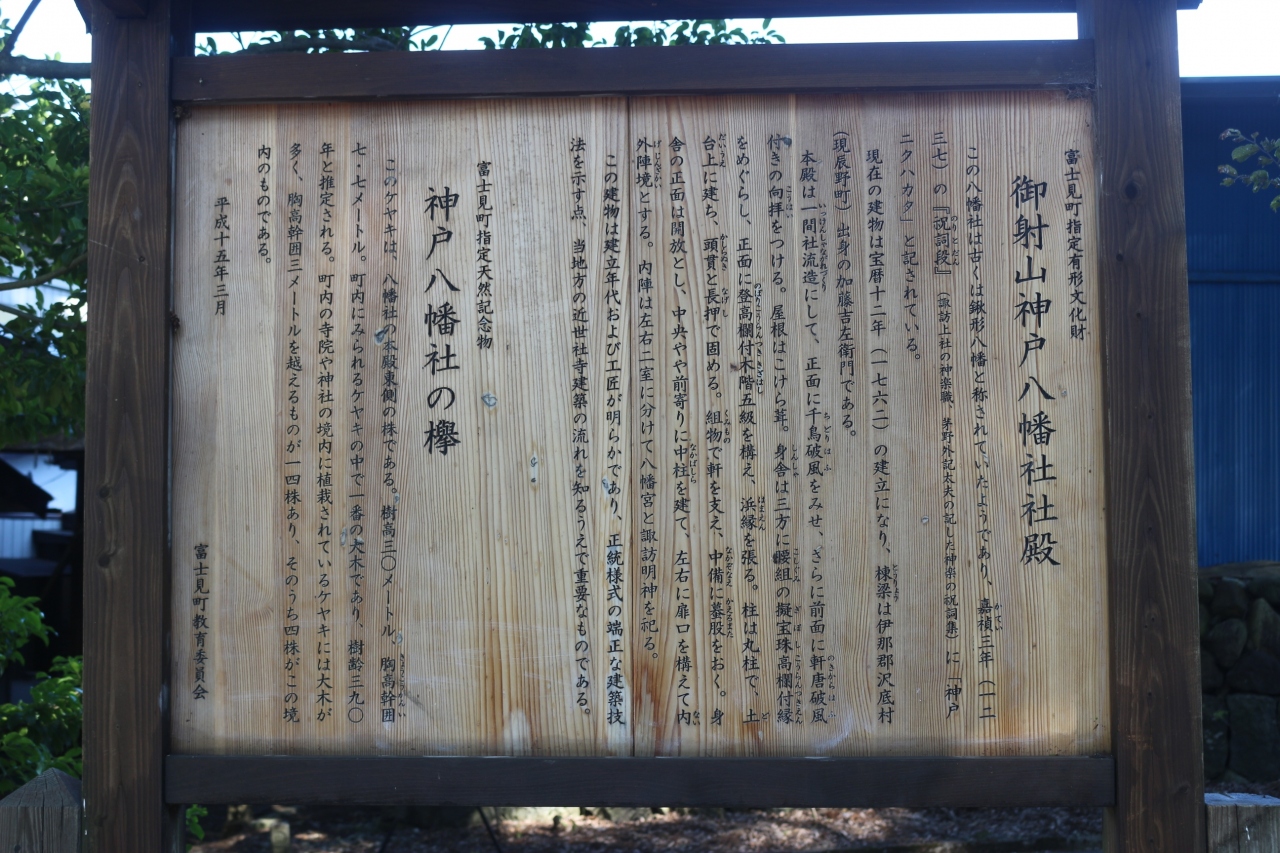 富士見町指定有形文化財
御射山神戸八幡社社殿
この八幡社は古くは鍬形八幡と称されていたようであり、嘉禎三年(一二
三七)の『祝詞段』(諏訪上社の神楽職、茅野外記太夫の記した神楽の祝詞集)に「神戸
ニクハカタ」と記されている。
現在の建物は宝暦十二年(一七六二)の建立になり、棟梁は伊那郡沢底村
(現辰野町)出身の加藤吉左衛門である。
本殿は一間社流造にして、正面に千鳥破風をみせ、さらに前面に軒唐破風
付きの向拝をつける。屋根はこけら葺。身舎は三方に腰組の擬宝珠高欄付縁
をめぐらし、正面に登高欄付木階五級を構え、浜縁を張る。柱は丸柱で、土
台上に建ち、頭貫と長押で固める。組物で軒を支え、中備に蟇股をおく。身
舎の正面は開放とし、中央やや前寄りに中柱を建て、左右に扉口を構えて内
外陣境とする。内陣は左右二室に分けて八幡宮と諏訪明神を祀る。
この建物は建立年代および工匠が明らかであり、正統様式の端正な建築技
法を示す点、当地方の近世社寺建築の流れを知るうえで重要なものである。
富士見町指定天然記念物
神戸八幡社の欅
このケヤキは、八幡社の本殿東側の株である。樹高三〇メートル、胸高幹囲
七・七メートル。町内にみられるケヤキの中で一番の大木であり、樹齢三九〇
年と推定される。町内の寺院や神社の境内に植栽されているケヤキには大木が
多く、胸高幹囲三メートルを越えるものが一四株あり、そのうち四株がこの境
内のものである。
平成十五年三月
富士見町教育委員会